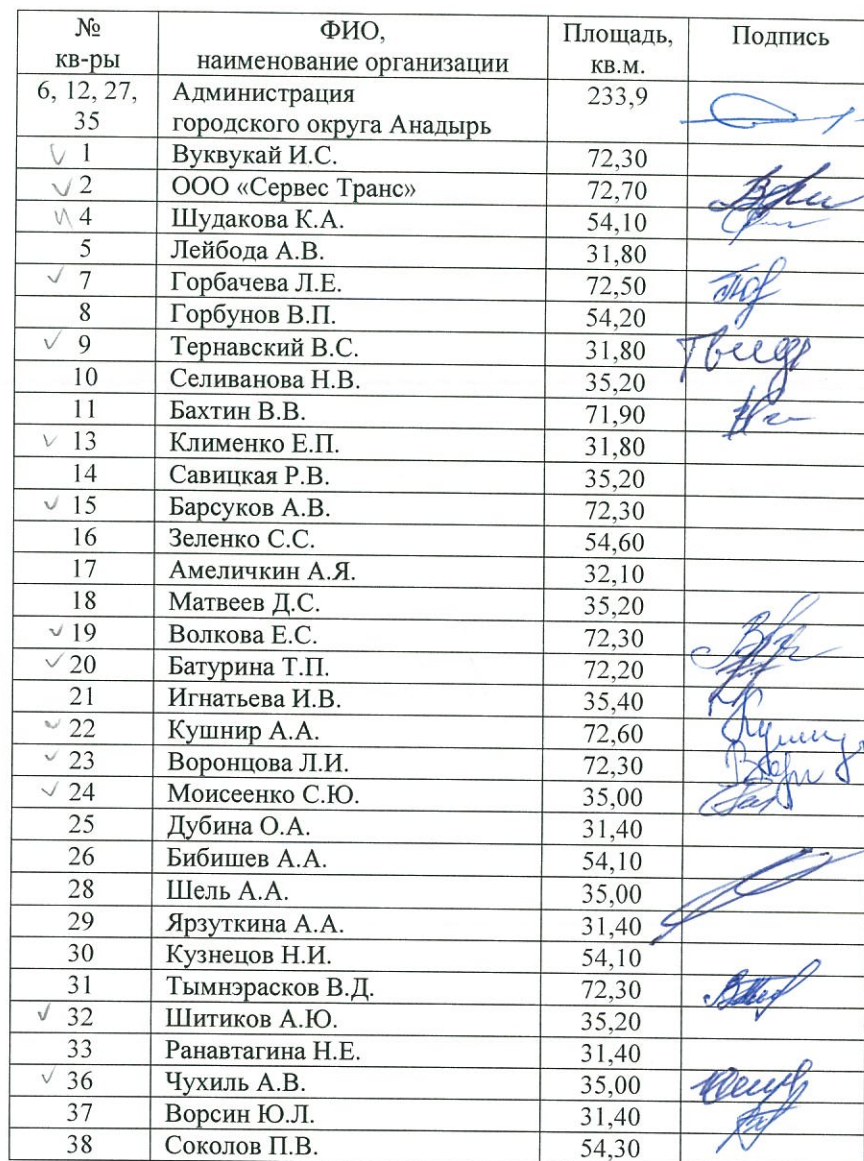 № кв-ры ФИО, наименование организации Площадь, кв.м. Подпись
6, 12, 27, 35 Администрация городского округа Анадырь 233,9
1 Вуквукай И.С. 72,30
2 ООО «Сервес Транс» 72,70
4 Шудакова К.А. 54,10
5 Лейбода А.В. 31,80
7 Горбачева Л.Е. 72,50
8 Горбунов В.П. 54,20
9 Тернавский В.С. 31,80
10 Селиванова Н.В. 35,20
11 Бахтин В.В. 71,90
13 Клименко Е.П. 31,80
14 Савицкая Р.В. 35,20
15 Барсуков А.В. 72,30
16 Зеленко С.С. 54,60
17 Амеличкин А.Я. 32,10
18 Матвеев Д.С. 35,20
19 Волкова Е.С. 72,30
20 Батурина Т.П. 72,20
21 Игнатьева И.В. 35,40
22 Кушнир А.А. 72,60
23 Воронцова Л.И. 72,30
24 Моисеенко С.Ю. 35,00
25 Дубина О.А. 31,40
26 Бибишев А.А. 54,10
28 Шель А.А. 35,00
29 Ярзуткина А.А. 31,40
30 Кузнецов Н.И. 54,10
31 Тымнэрасков В.Д. 72,30
32 Шитиков А.Ю. 35,20
33 Ранавтагина Н.Е. 31,40
36 Чухиль А.В. 35,00
37 Ворсин Ю.Л. 31,40
38 Соколов П.В. 54,30